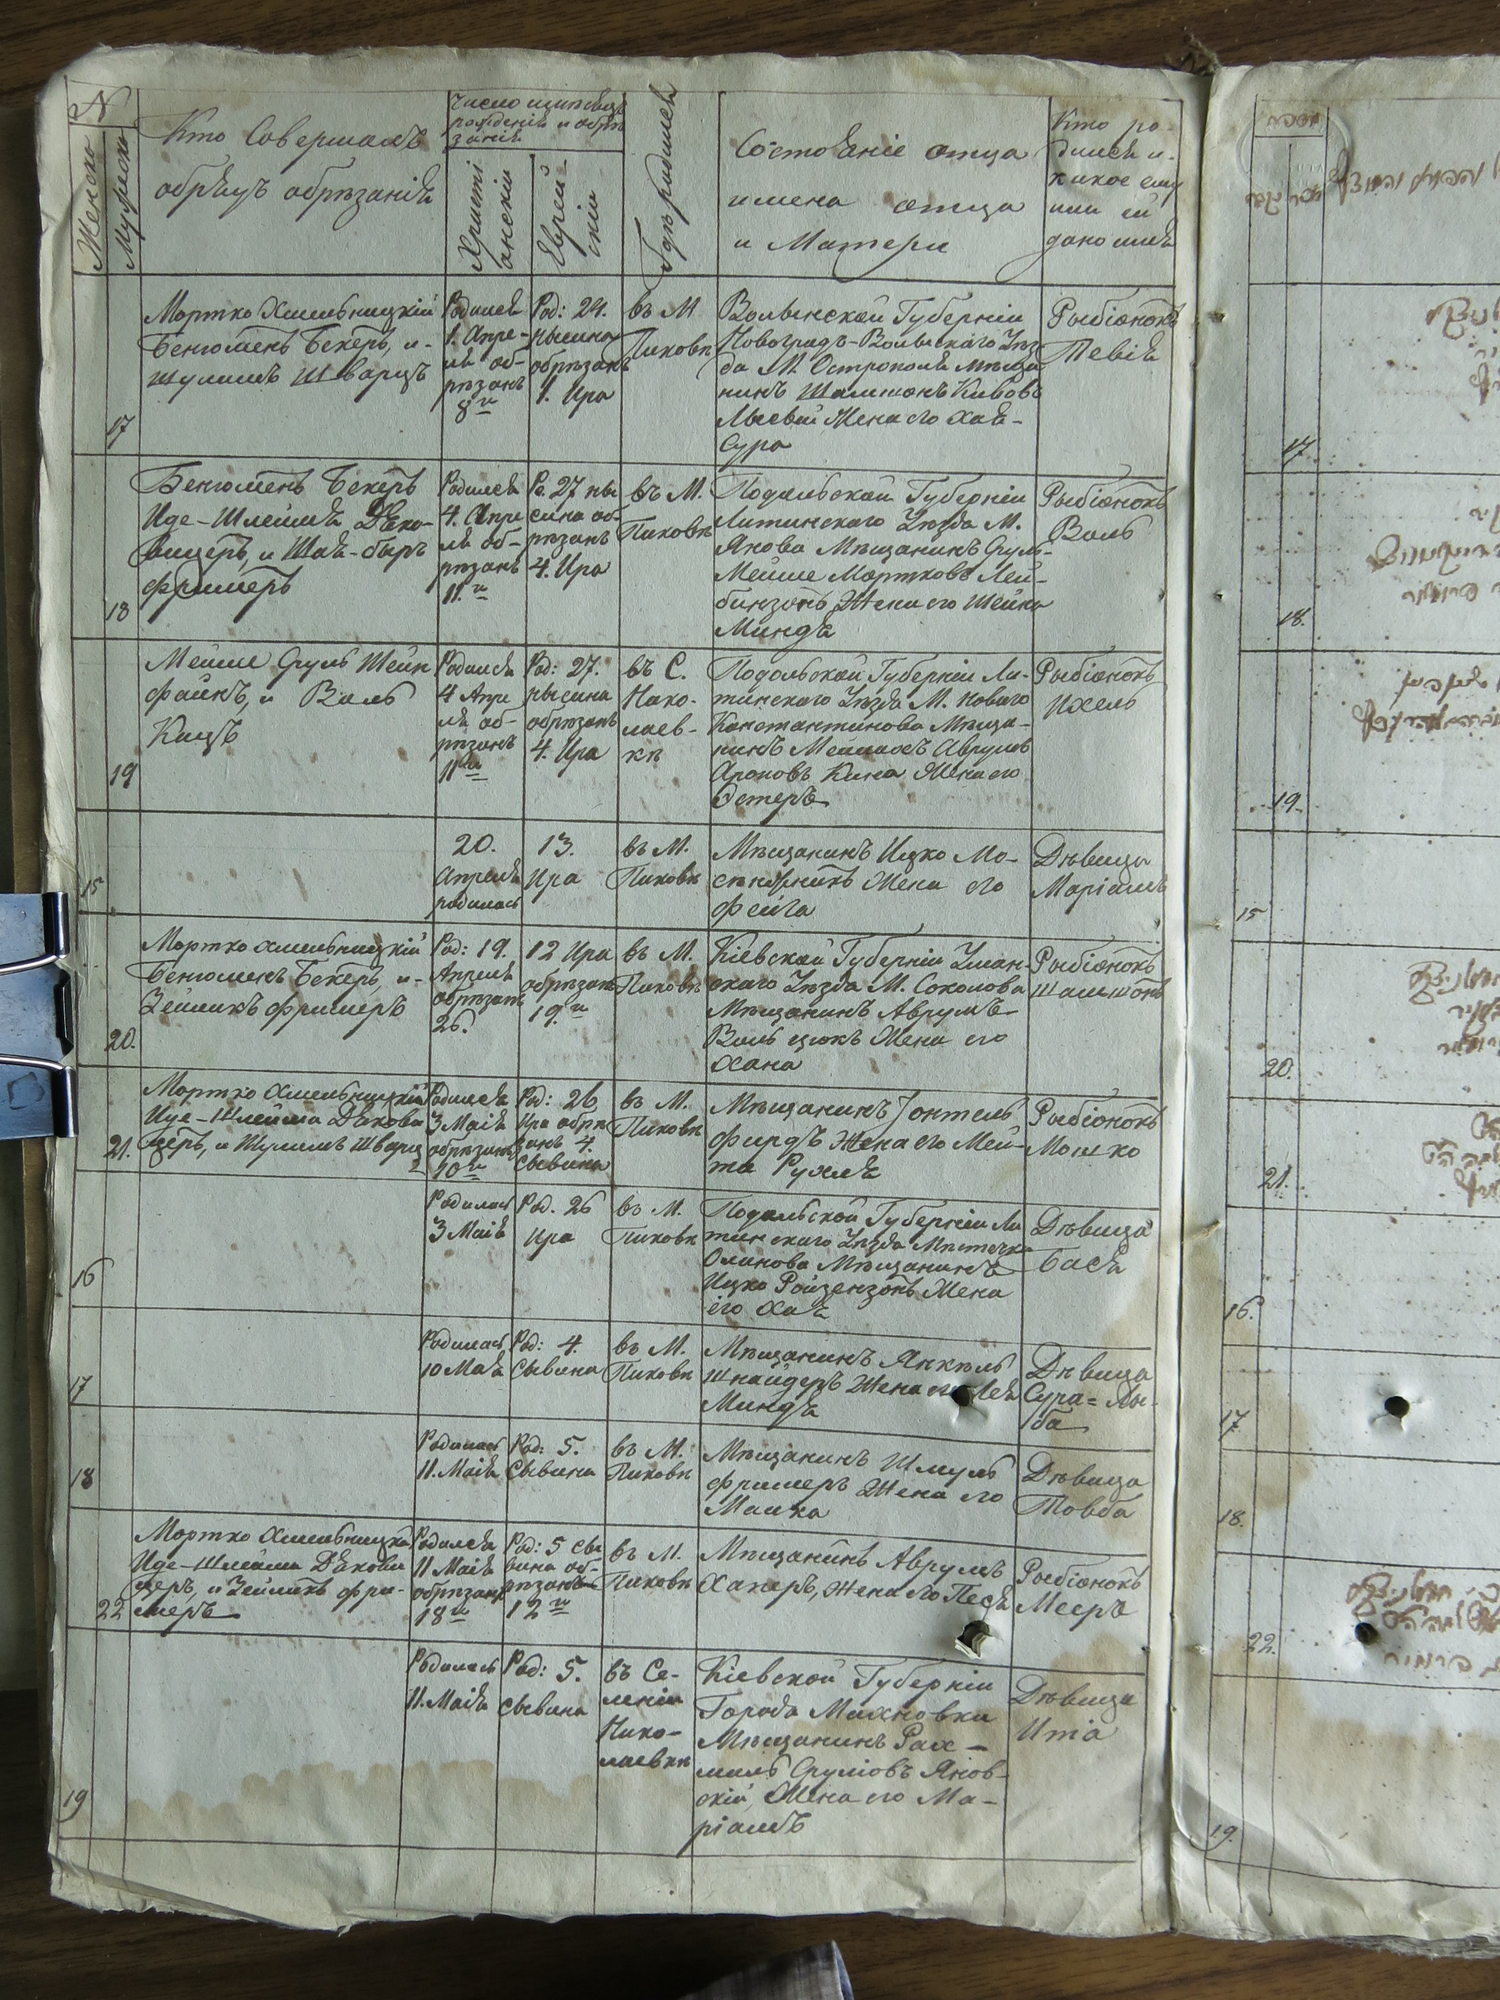 N
Женска
Мужеска
Кто Совершалъ
обрядъ обрѣзанія
Число и мѣсяцъ
рожденія и обрѣ
занія
Христі
анскій
Еврей
скій
Гдѣ родился
Состояніе отца
имена отца
и Матери
Кто ро-
дился и
какое ему
или ей
дано имя
17
Мортко Хмельницкій
Бенюменъ Бекеръ, и
Шулимъ Шварцъ
Родился
1. Апре-
ля об-
рѣзанъ
8й
Род: 24.
нысина
обрѣзанъ
1. Ира
въ М.
Пиковѣ
Волынской Губерніи
Новоградъ-Волынскаго Уѣз
да М. Острополя мѣща
нинъ Шамшонъ
Жена его Хая-
Сура
Рыбіонокъ
Тевія
18
Бенюменъ Бекеръ
Иде-Шлейма Дяко-
вицеръ, и Шая-беръ
фримеръ
Родился
4. Апре
ля об-
рѣзанъ
11.й
Ро. 27 ны
сина об-
рѣзанъ
4. Ира
въ М.
Пиковѣ
Подольской Губерніи
Литинскаго Уѣзда М.
Янова Мѣщанинъ Сруль-
Мейше Мортковъ Лей-
бинзонъ, Жена его Шейна
Миндя
Рыбіонокъ
Волъ
19
Мейше Сруль Шейн
файнъ, и Волъ
Кацъ
Родился
4 Апре
ля об-
рѣзанъ
11й
Род: 27.
нысина
обрѣзанъ
4. Ира
въ С.
Нико-
лаев-
кѣ
Подольской Губерніи Ли-
тинскаго Уѣзда М. Новаго
Константинова Мѣща-
нинъ Аврумъ
Ароновъ Жена его
Эстеръ
Рыбіонокъ
Ихель
15
20.
Апреля
родилась
13.
Ира
въ М.
Пиковѣ
Мѣщанинъ Ицко
Жена его
фейга
Дѣвица
Маріамъ
20.
Мортко Хмельницкій
Бенюменъ Бекеръ, и
Зейликъ фримеръ
Род: 19.
Апреля
обрѣзанъ
26.
12 Ира
обрѣзанъ
19.й
въ М.
Пиковѣ
Кіевской Губерніи Уман-
скаго Уѣзда М. Соколова
Мѣщанинъ Аврумъ
Жена его
Хана
Рыбіонокъ
Шамшонъ
21.
Мортко Хмельницкій
Иде-Шлейма Дякови
церъ, и Шулимъ Шварц
Родился
3 Маія
обрѣзанъ
10й
Род: 26
Ира обрѣ
занъ 4.
Сывина
въ М.
Пиковѣ
Мѣщанинъ Іонтель
фирдъ Жена его Мей-
та Рухля
Рыбіонокъ
Мошко
16
Родилась
3 Маія
Род. 26
Ира
въ М.
Пиковѣ
Подольской Губерніи Ли
тинскаго Уѣзда Мѣстечка
Уланова Мѣщанинъ
Ицко Ройзензонъ Жена
его Хая
Дѣвица
Бася
17
Родилась
10 Мая
Род: 4.
Сывина
въ М.
Пиковѣ
Мѣщанинъ Янкель
Шнайдеръ Жена его Лея
Миндя
Дѣвица
Сура=Лы-
ба
18
Родилась
11. Маія
Род: 5.
Сывина
въ М.
Пиковѣ
Мѣщанинъ Шмуль
фримеръ Жена его
Малка
Дѣвица
Товба
22
Мортко Хмельницки
Иде-Шлейма Дякови
церъ, и Зейликъ фри-
меръ
Родился
11 Маія
обрѣзанъ
18й
Род: 5 сы
вина об-
рѣзанъ
12й
въ М.
Пиковѣ
Мѣщанинъ Аврумъ
Жена его Песя
Рыбіонокъ
Мееръ
19
Родилась
11. Маія
Род: 5.
Сывина
въ Се-
леніи
Нико-
лаевкѣ
Кіевской Губерніи
Города Махновки
Мѣщанинъ Рах-
миль Сруліовъ Янов-
скій, Жена его Ма-
ріамъ
Дѣвица
Итіа
17.
18.
19.
15
20.
21.
16.
17
18.
22.
19.